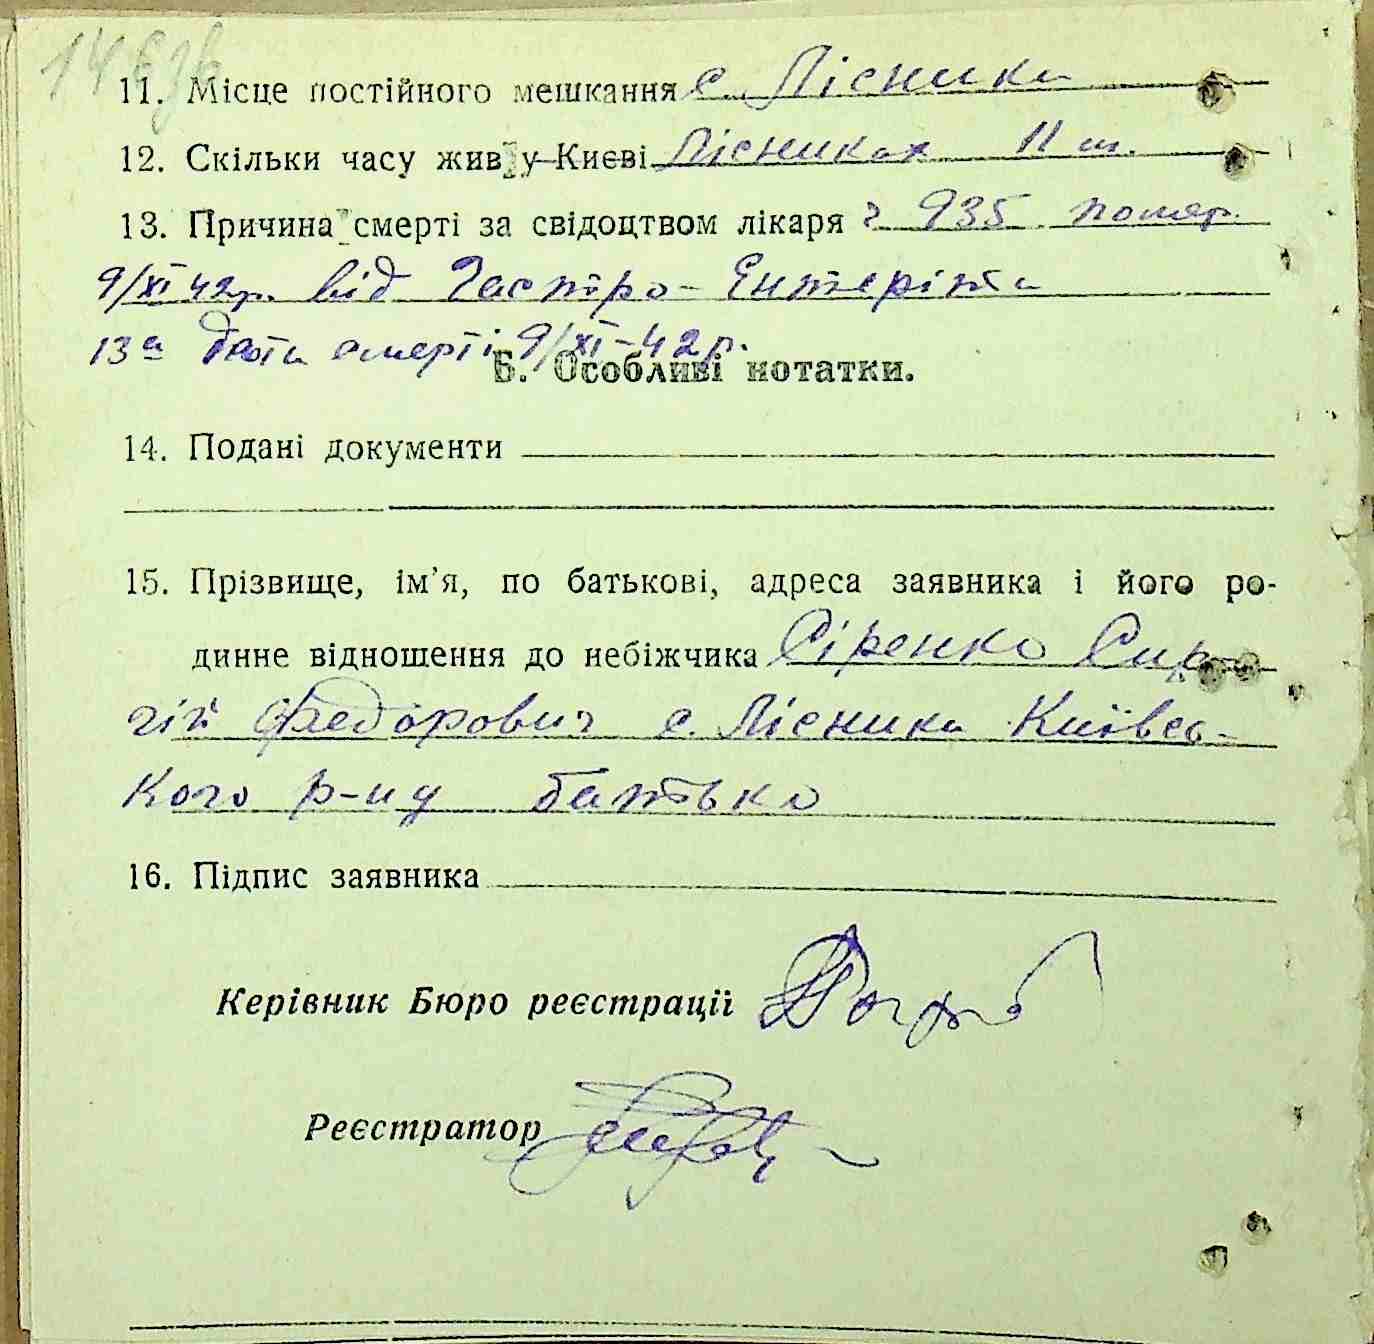 11. Місце постійного мешкання с. Лісники
12. Скільки часу жив у Києві Лісниках 11 м.
13. Причина смерті за свідоцтвом лікаря 935 помер.
9/XI 42р. від Гастро-Ентеріта
13а дата смерті 9/XI-42р.
Б. Особливі нотатки.
14. Подані документи
15. Прізвище, ім'я, по батькові, адреса заявника і його ро-
динне відношення до небіжчика Сіренко Сир
гій Федорович с. Лісники Київсь-
кого р-ну батько
16. Підпис заявника
Керівник Бюро реєстрації
Реєстратор